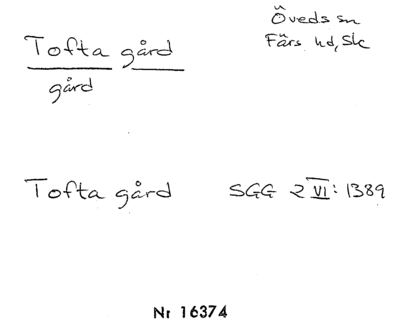 Öveds sn
Tofta gård
Färs hd, Sk
gård
Tofta gård SGG 2 VI: 1389
Nr 16374